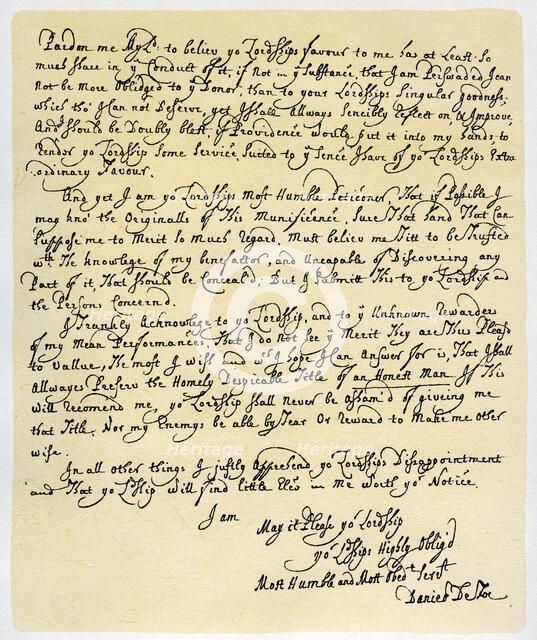 Pardon me My Ld: to believ yor Lordships favour to me has at Least So
much share in ye Conduct of it, if not in ye substance, that I am Perswaded I can
not be more Obliged to ye Donor, than to your Lordships Singular goodness;
which tho' I Can not Deserve, yet I shall Allways Sencibly reflect on, & Improve,
And should be Doubly blest, if Providence would put it into my hands, to
render yor Lordship Some Service, Suited to ye Sence I have of yor Lordships Extra
ordinary Favour.
And yet I am yor Lordships Most Humble Peticoner, That if Possible I
may kno' the Originalls of This Munificence, Sure That hand That Can
Suppose me to Merit So much Regard, Must believe me Fitt to be Trusted
wth The knowlege of my benefactor, and Uncapable of Discovering any
Part of it, That should be Conceal'd; But I Submitt This to yor Lordship and
the Persons Concernd.
I Frankly Acknowlege to yor Lordship, and to ye Unknown Rewarders
of my Mean Performances, That I do not See ye Merit They are Thus Pleasd
to vallue, The most I wish and wch I hope I Can Answer for is, That I shall
Allwayes Preserv the Homely Despicable Title of an Honest Man If This
will recomend me yor Lordship shall never be asham'd of giveing me
that Title, Nor my Enemys be able by Fear Or Reward to Make me other
wise.
In all other things I justly Apprehend yor Lordships Disappointment
and That yor Ldship will find little Else in me worth yor Notice.
I am
May it Please yor Lordship
yor Ldships Highly Oblig'd
Most Humble and Most Obedt Servt
Daniel De Foe
Heritage
Heritage
Heritage